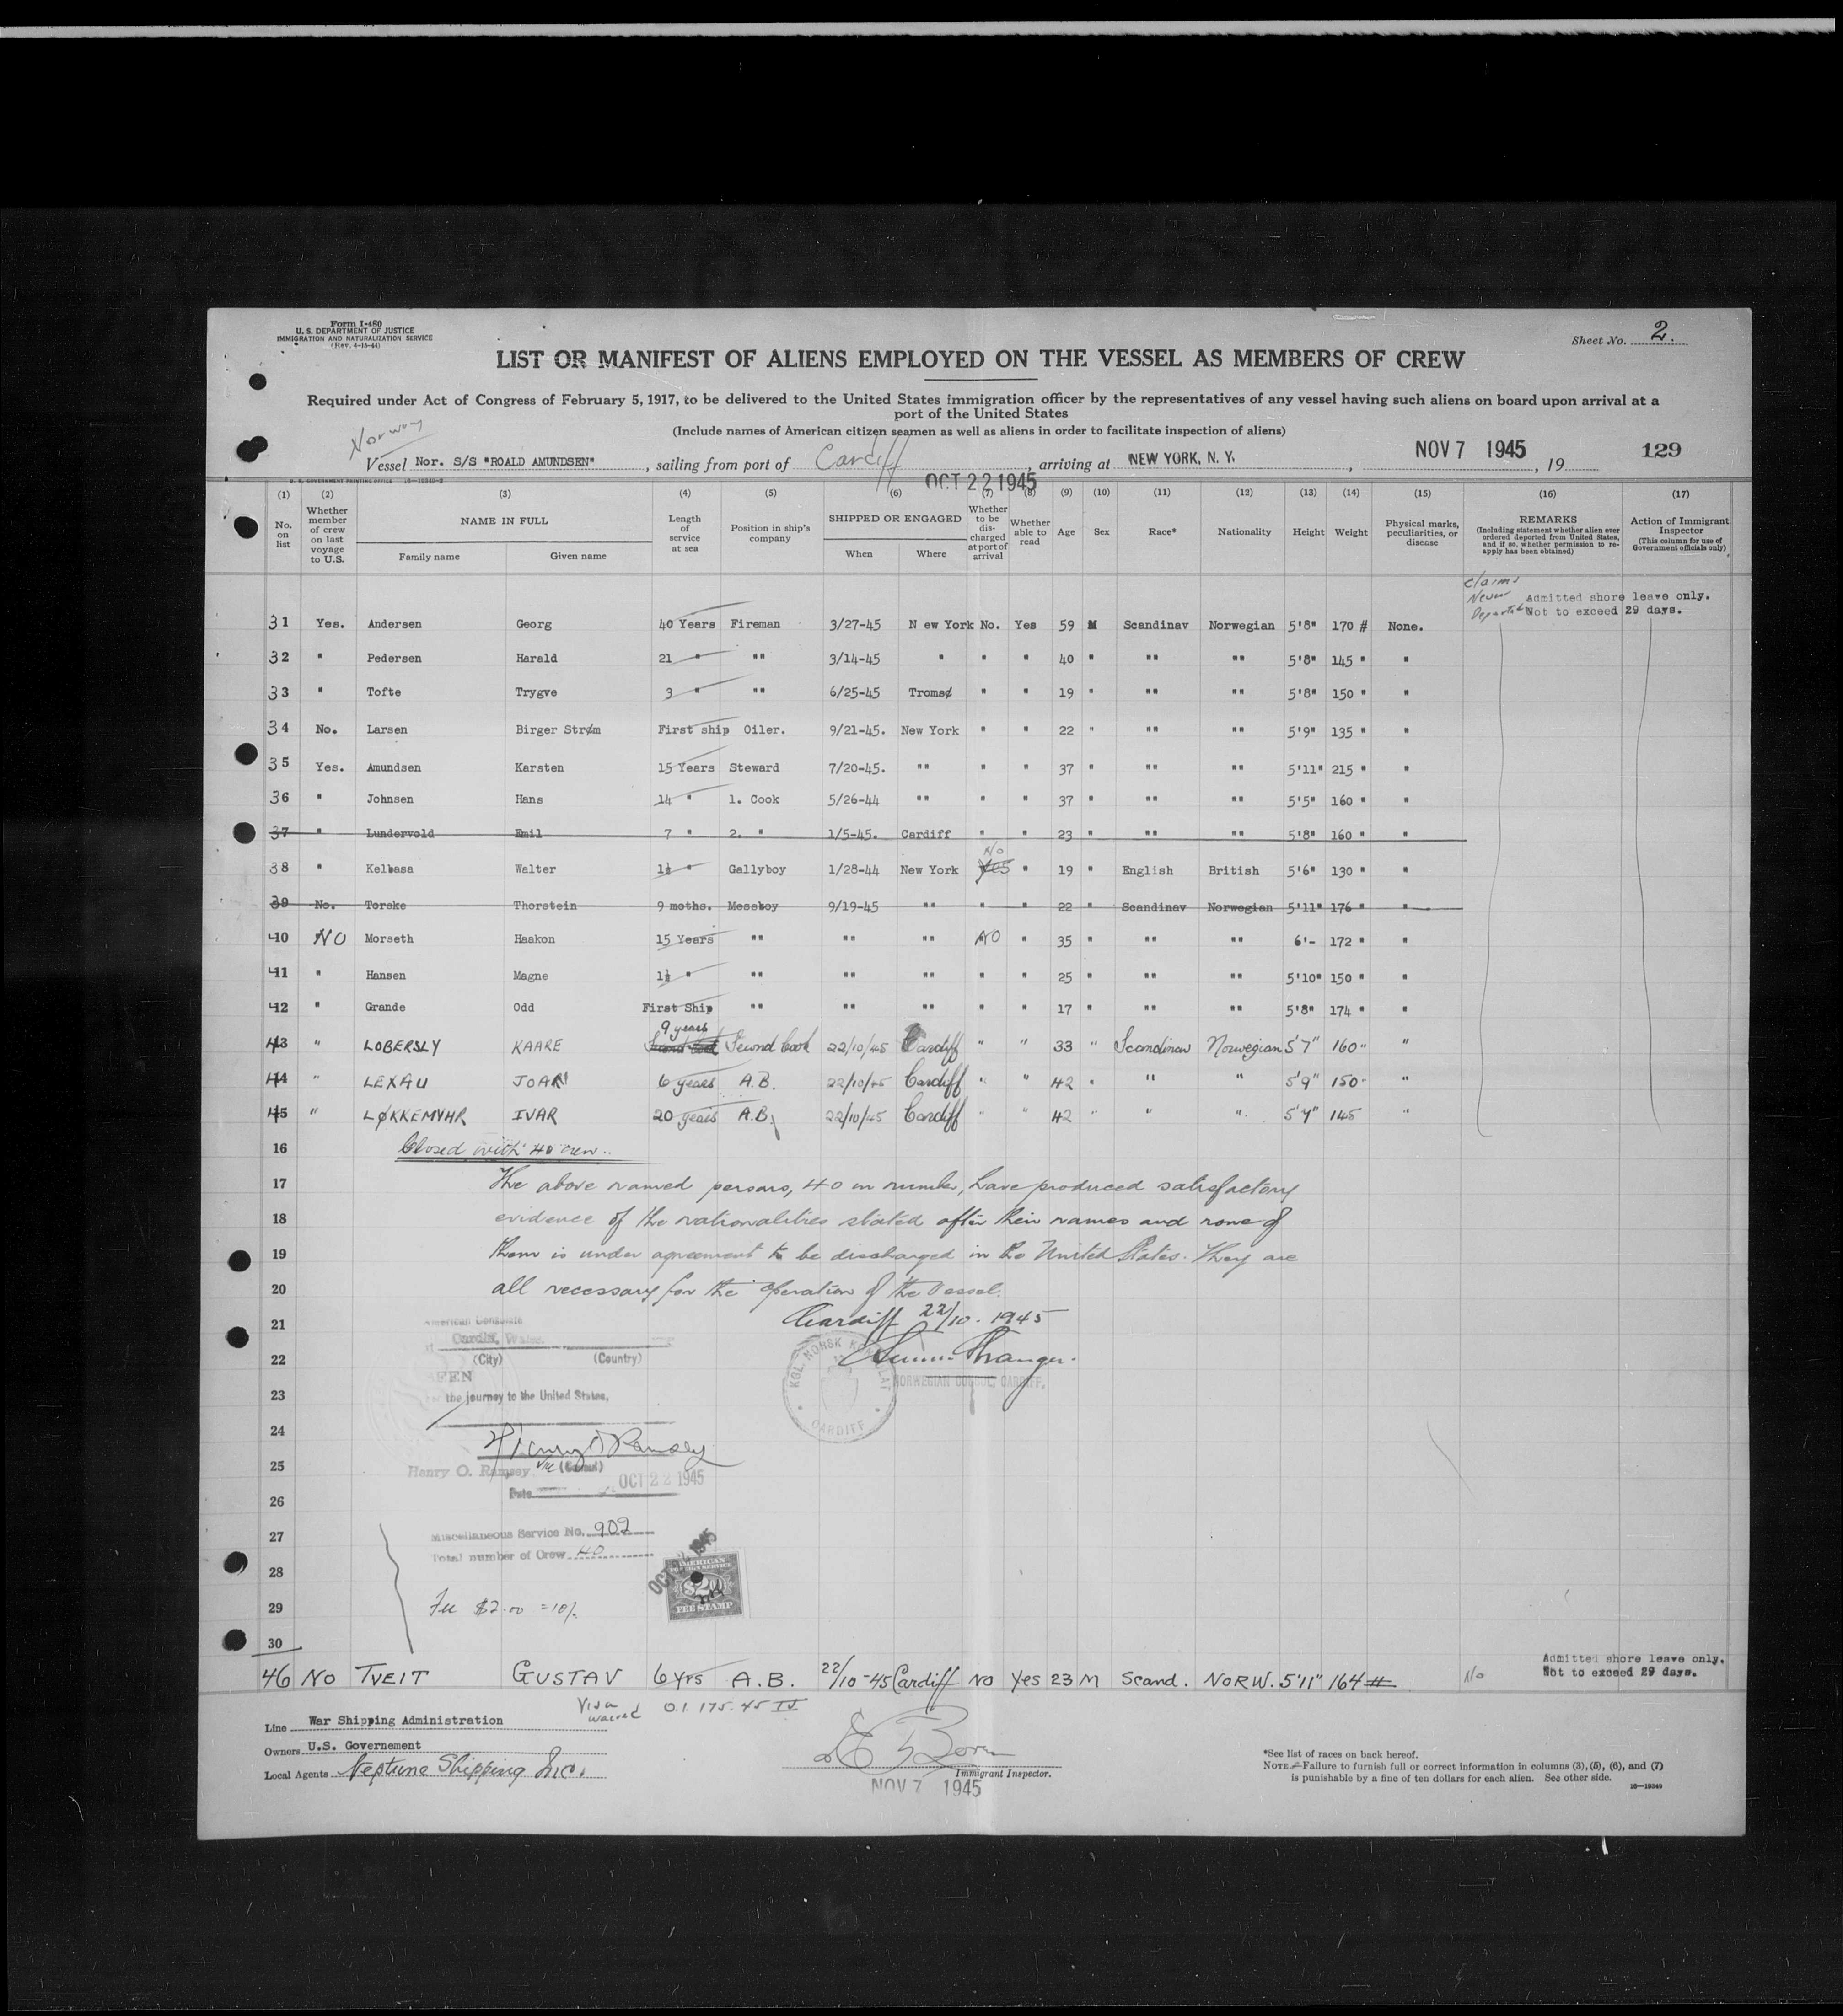 Form I-480
U. S. DEPARTMENT OF JUSTICE
IMMIGRATION AND NATURALIZATION SERVICE
(Rev. 4-15-44)
Sheet No. 2.
LIST OR MANIFEST OF ALIENS EMPLOYED ON THE VESSEL AS MEMBERS OF CREW
Required under Act of Congress of February 5, 1917, to be delivered to the United States immigration officer by the representatives of any vessel having such aliens on board upon arrival at a
port of the United States
(Include names of American citizen seamen as well as aliens in order to facilitate inspection of aliens)
Norway
Vessel Nor. S/S "ROALD AMUNDSEN", sailing from port of Cardiff, arriving at NEW YORK, N. Y., NOV 7 1945, 19 129
OCT 22 1945
(1) (2) (3) (4) (5) (6) (7) (8) (9) (10) (11) (12) (13) (14) (15) (16) (17)
No. on list
Whether member of crew on last voyage to U.S.
NAME IN FULL
Family name
Given name
Length of service at sea
Position in ship's company
SHIPPED OR ENGAGED
When
Where
Whether to be discharged at port of arrival
Whether able to read
Age
Sex
Race*
Nationality
Height
Weight
Physical marks, peculiarities, or disease
REMARKS
(Including statement whether alien ever ordered deported from United States, and if so, whether permission to reapply has been obtained)
Action of Immigrant Inspector
(This column for use of Government officials only)
Claims Never Deported
Admitted shore leave only.
Not to exceed 29 days.
31 Yes. Andersen Georg 40 Years Fireman 3/27-45 N ew York No. Yes 59 M Scandinav Norwegian 5'8" 170 # None.
32 " Pedersen Harald 21 " "" 3/14-45 " " " 40 " "" "" 5'8" 145 " "
33 " Tofte Trygve 3 " "" 6/25-45 Tromsø " " 19 " "" "" 5'8" 150 " "
34 No. Larsen Birger Strøm First ship Oiler. 9/21-45. New York " " 22 " "" "" 5'9" 135 " "
35 Yes. Amundsen Karsten 15 Years Steward 7/20-45. "" " " 37 " "" "" 5'11" 215 " "
36 " Johnsen Hans 14 " 1. Cook 5/26-44 "" " " 37 " "" "" 5'5" 160 " "
37 " Lundervold Emil 7 " 2. " 1/5-45. Cardiff " " 23 " "" "" 5'8" 160 " "
No
38 " Kelbasa Walter 1½ " Gallyboy 1/28-44 New York Yes " 19 " English British 5'6" 130 " "
39 No. Torske Thorstein 9 moths. Messboy 9/19-45 "" " " 22 " Scandinav Norwegian 5'11" 176 " "
40 NO Morseth Haakon 15 Years "" "" "" NO " 35 " "" "" 6'- 172 " "
41 " Hansen Magne 1½ " "" "" "" " " 25 " "" "" 5'10" 150 " "
42 " Grande Odd First Ship "" "" "" " " 17 " "" "" 5'8" 174 " "
43 " LOBERSLY KAARE 9 years Second Cook 22/10/45 Cardiff " " 33 " Scandinav Norwegian 5'7" 160 " "
44 " LEXAU JOAR 6 years A.B. 22/10/45 Cardiff " " 42 " " " 5'9" 150 " "
45 " LØKKEMYHR IVAR 20 years A.B. 22/10/45 Cardiff " " 42 " " " 5'7" 145 "
16 Closed with 40 crew..
17 The above named persons, 40 in number, have produced satisfactory
18 evidence of the nationalities stated after their names and none of
19 them is under agreement to be discharged in the United States. They are
20 all necessary for the operation of the Vessel.
21 Cardiff 22/10. 1945
American Consulate
Cardiff, Wales
22 (City) (Country)
KGL. NORSK KONSULAT CARDIFF
NORWEGIAN CONSUL, CARDIFF.
SEEN
23 the journey to the United States,
24 Henry O Ramsey
25 Henry O. Ramsey Vice (Consul)
Date OCT 22 1945
26
27 Miscellaneous Service No. 902
Total number of Crew 40
28
29 Fee $2.00 = 10/-
AMERICAN FEE STAMP
30
46 NO TVEIT GUSTAV 6 yrs A.B. 22/10-45 Cardiff NO Yes 23 M Scand. NORW. 5'11" 164 # No
Admitted shore leave only.
Not to exceed 29 days.
Visa waived O.I. 175.45
Line War Shipping Administration
Owners U.S. Governement
Local Agents Neptune Shipping Inc.
Immigrant Inspector.
NOV 7 1945
*See list of races on back hereof.
NOTE.—Failure to furnish full or correct information in columns (3), (5), (6), and (7)
is punishable by a fine of ten dollars for each alien. See other side.